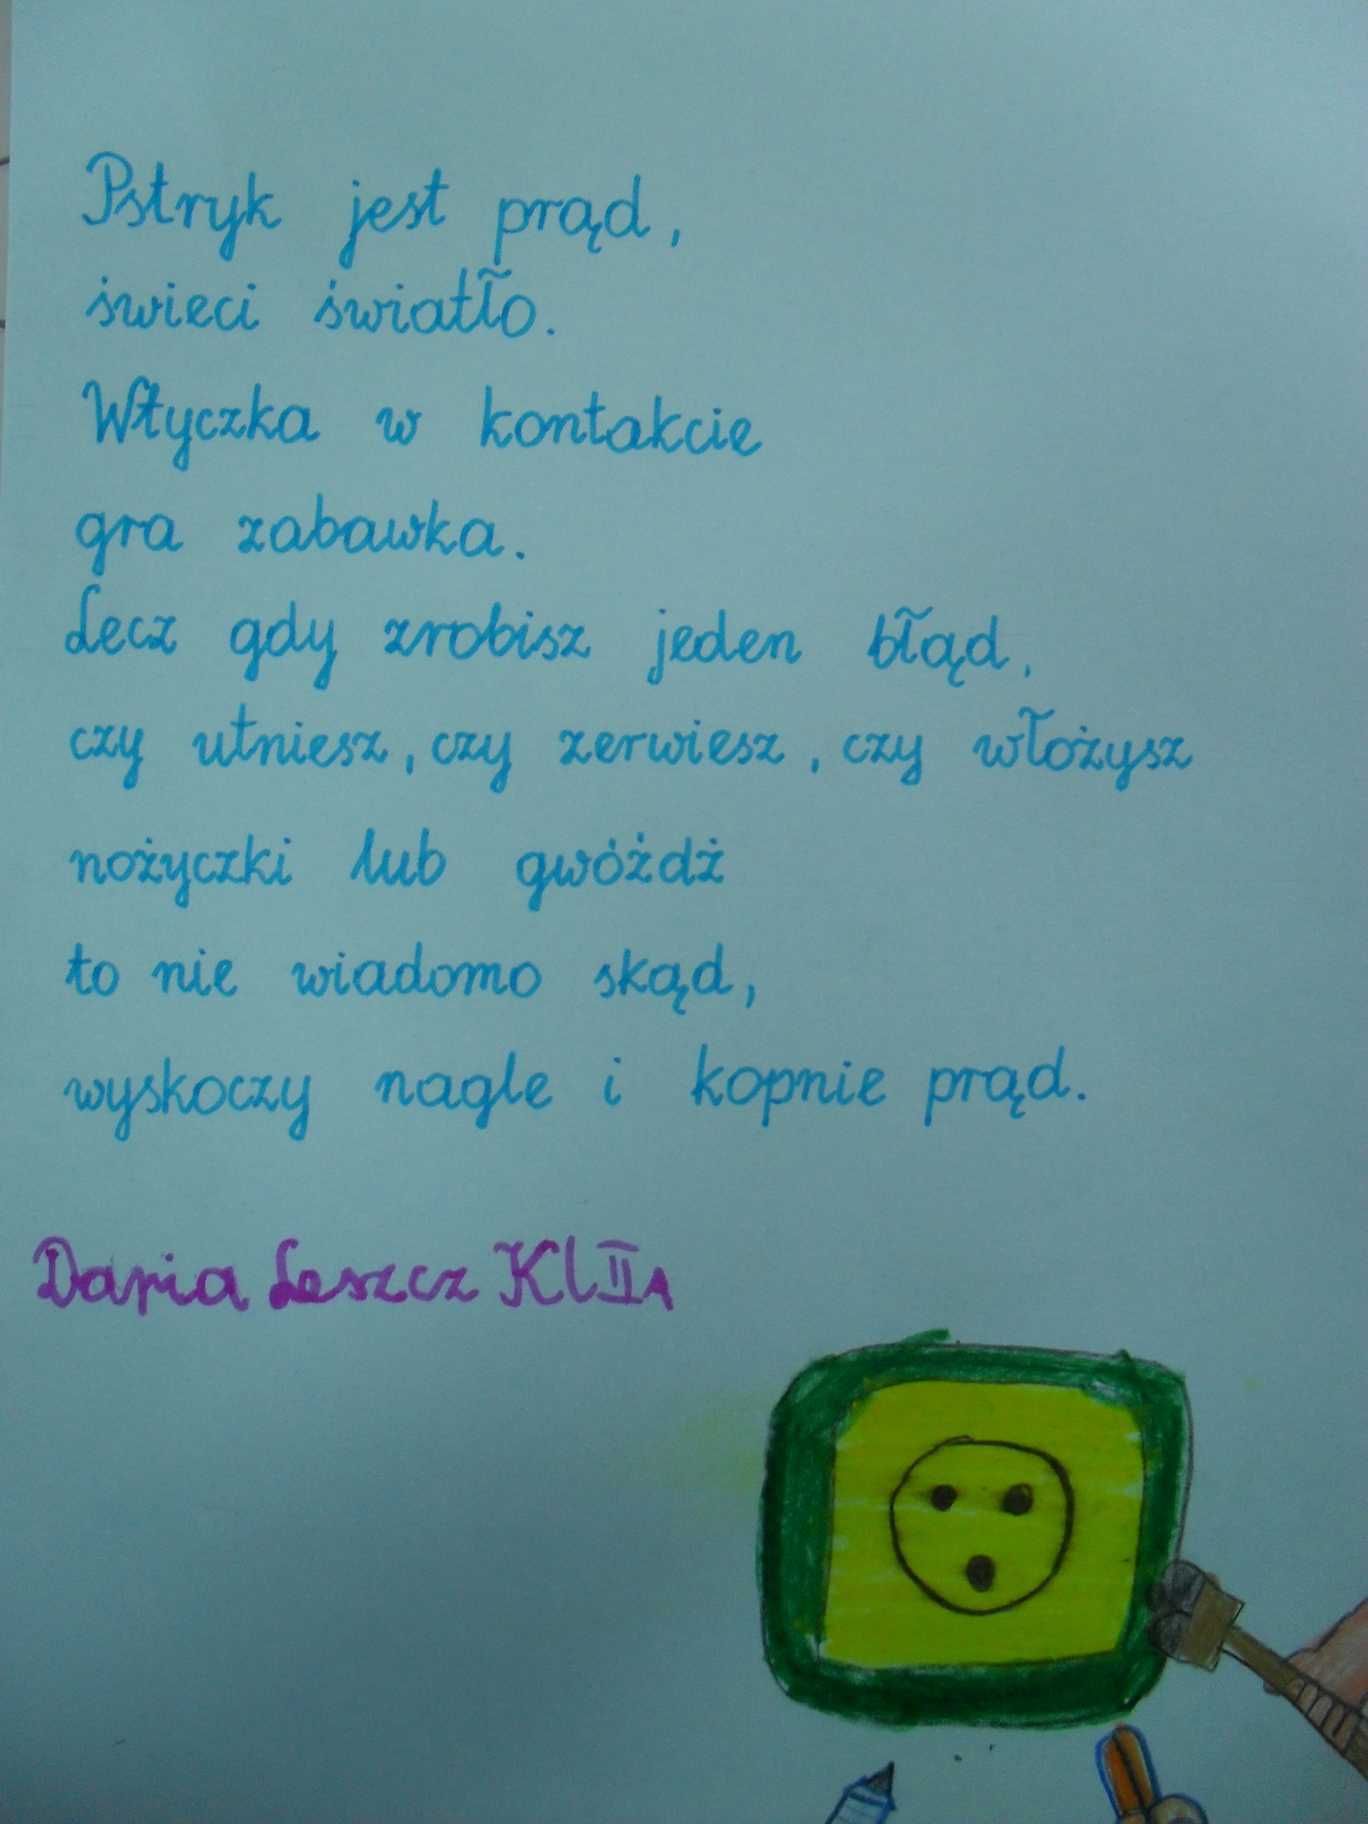 Pstryk jest prąd,
świeci światło.
Wtyczka w kontakcie
gra zabawka.
Lecz gdy zrobisz jeden błąd,
czy utniesz, czy zerwiesz, czy włożysz
nożyczki lub gwóźdź
to nie wiadomo skąd,
wyskoczy nagle i kopnie prąd.
Daria Leszcz Kl IIA